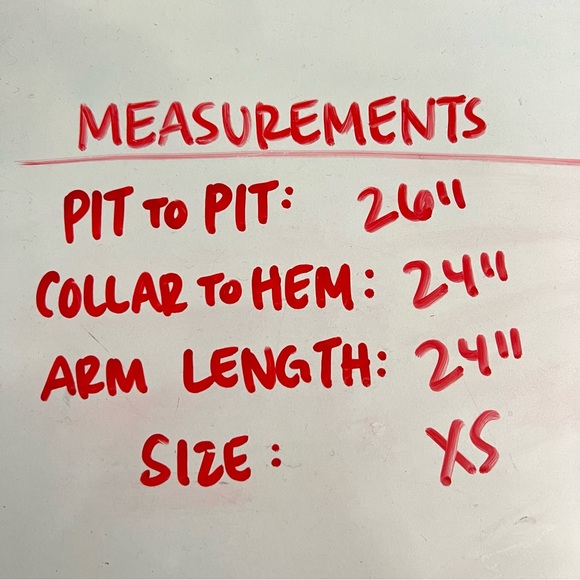 MEASUREMENTS
PIT TO PIT: 26"
COLLAR TO HEM: 24"
ARM LENGTH: 24"
SIZE: XS